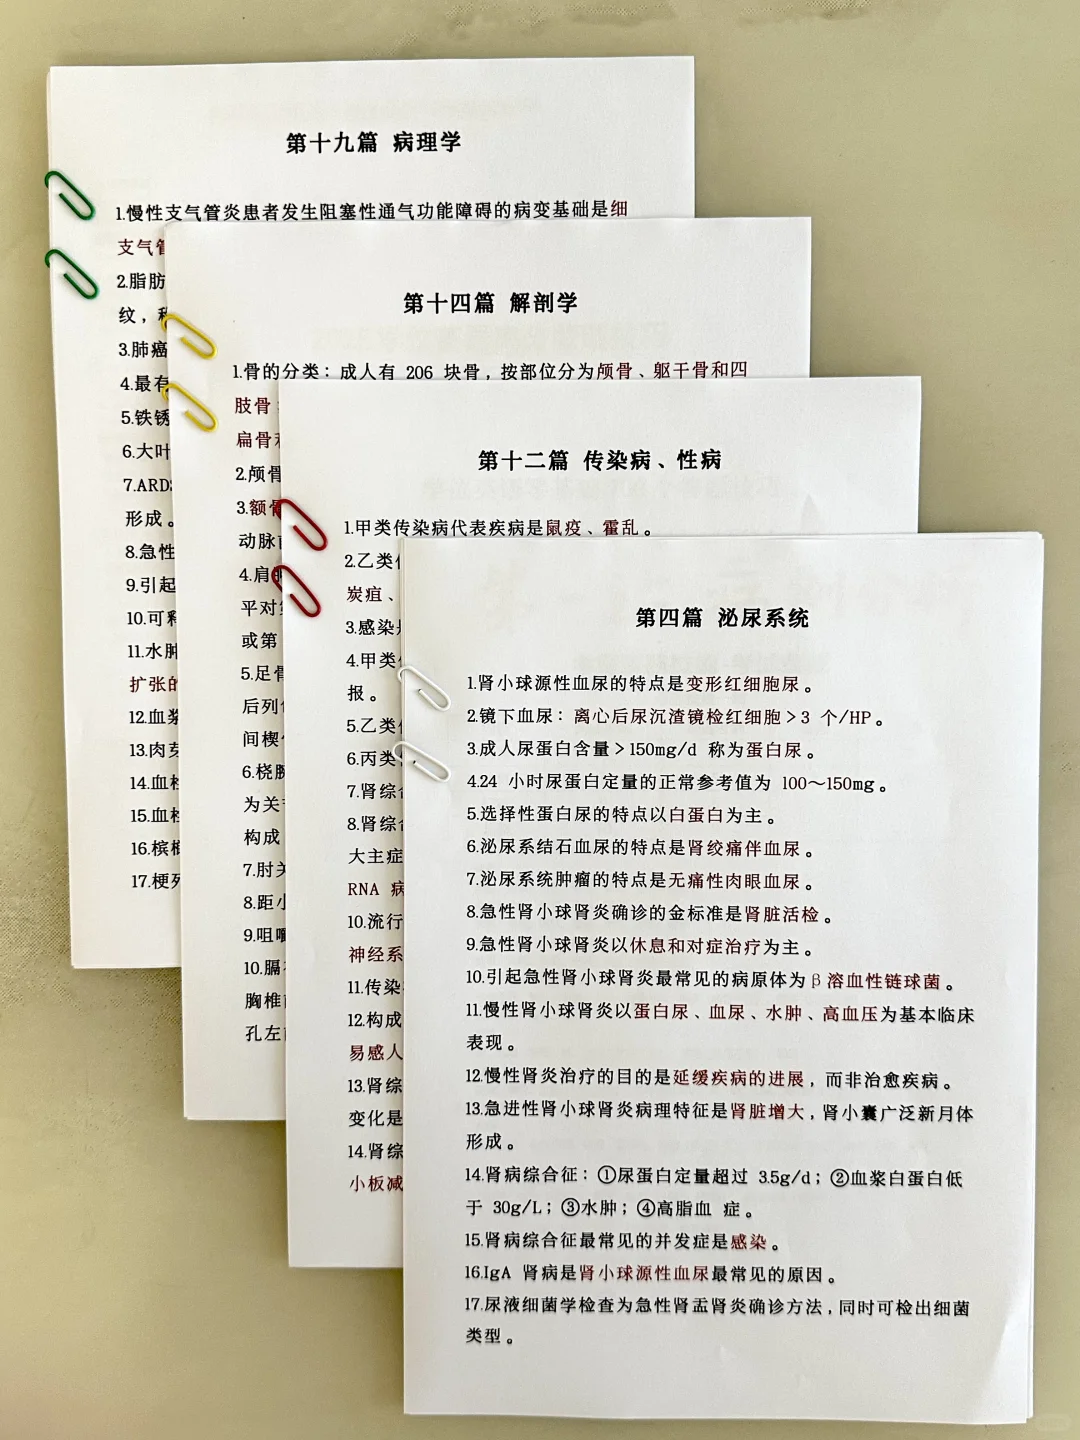 第十九篇 病理学
1.慢性支气管炎患者发生阻塞性通气功能障碍的病变基础是细
支气管
2.脂肪
纹，称
3.肺癌
4.最有
5.铁锈
6.大叶
7.ARDS
形成。
8.急性
9.引起
10.可释
11.水肿
扩张的
12.血浆
13.肉芽
14.血栓
15.血栓
16.槟榔
17.梗死
第十四篇 解剖学
1.骨的分类：成人有 206 块骨，按部位分为颅骨、躯干骨和四
肢骨
扁骨和
2.颅骨
3.额骨
动脉
4.肩
平对
或第
5.足骨
后列
间楔
6.桡腕
为关
构成
7.肘关
8.距小
9.咀嚼
10.膈
胸椎
孔左
第十二篇 传染病、性病
1.甲类传染病代表疾病是鼠疫、霍乱。
2.乙类传
炭疽、
3.感染
4.甲类传
报。
5.乙类传
6.丙类
7.肾综合
8.肾综合
大主症
RNA 病
10.流行
神经系
11.传染
12.构成
易感人
13.肾综
变化是
14.肾综
小板减
第四篇 泌尿系统
1.肾小球源性血尿的特点是变形红细胞尿。
2.镜下血尿：离心后尿沉渣镜检红细胞>3 个/HP。
3.成人尿蛋白含量>150mg/d 称为蛋白尿。
4.24 小时尿蛋白定量的正常参考值为 100～150mg。
5.选择性蛋白尿的特点以白蛋白为主。
6.泌尿系结石血尿的特点是肾绞痛伴血尿。
7.泌尿系统肿瘤的特点是无痛性肉眼血尿。
8.急性肾小球肾炎确诊的金标准是肾脏活检。
9.急性肾小球肾炎以休息和对症治疗为主。
10.引起急性肾小球肾炎最常见的病原体为β溶血性链球菌。
11.慢性肾小球肾炎以蛋白尿、血尿、水肿、高血压为基本临床
表现。
12.慢性肾炎治疗的目的是延缓疾病的进展，而非治愈疾病。
13.急进性肾小球肾炎病理特征是肾脏增大，肾小囊广泛新月体
形成。
14.肾病综合征：①尿蛋白定量超过 3.5g/d；②血浆白蛋白低
于 30g/L；③水肿；④高脂血 症。
15.肾病综合征最常见的并发症是感染。
16.IgA 肾病是肾小球源性血尿最常见的原因。
17.尿液细菌学检查为急性肾盂肾炎确诊方法，同时可检出细菌
类型。